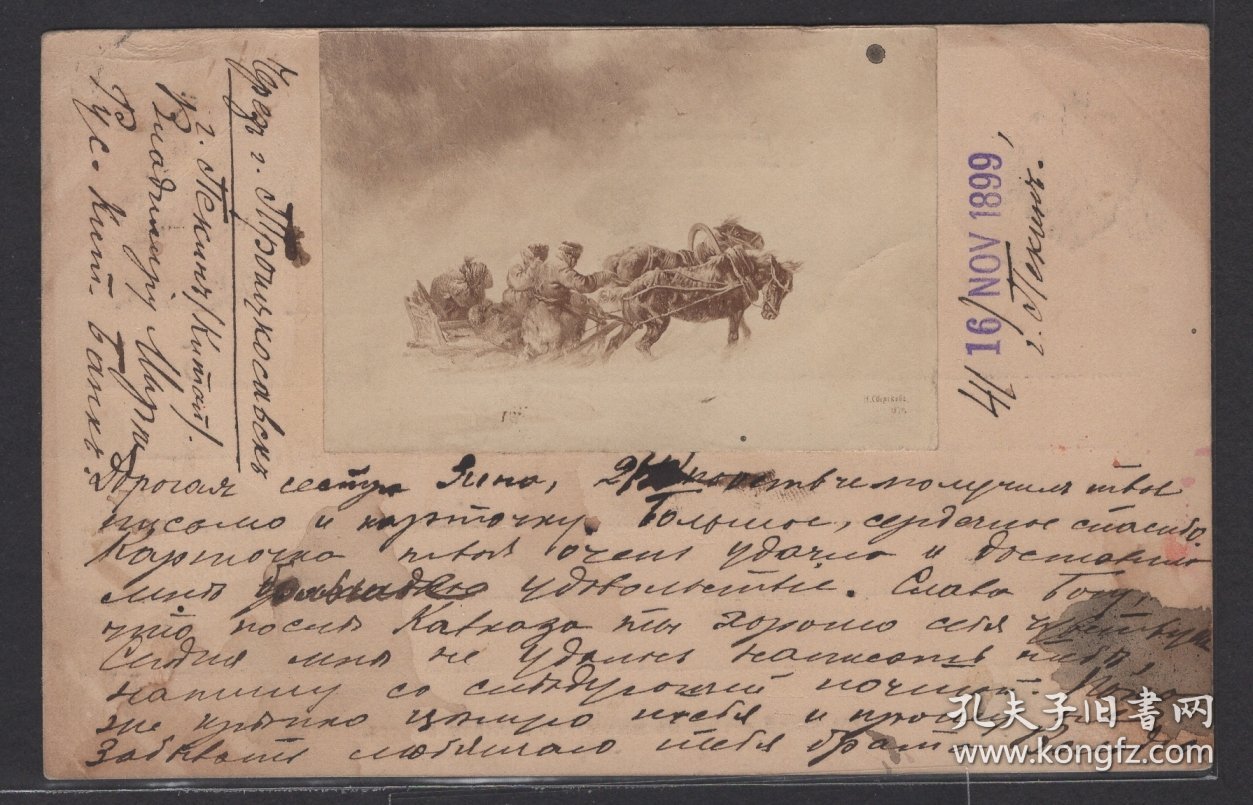 Чрезъ г. Троицкосавскъ
г. Пекинъ (Китай).
Владимиру
Рус.-Кит. банкъ.
4/16 NOV 1899
г. Пекинъ.
Н. Сверчковъ
Дорогая сестра Зина, получилъ твое
письмо и карточку. Большое, сердечное спасибо.
Карточка твоя очень удачна и доставила
мнѣ удовольствіе. Слава Богу,
что послѣ Кавказа ты хорошо себя
мнѣ не удалось написать тебѣ,
напишу со слѣдующей почтой.
же крѣпко цѣлую тебя и прошу не
забывать любящаго тебя брата
孔夫子旧书网
www.kongfz.com